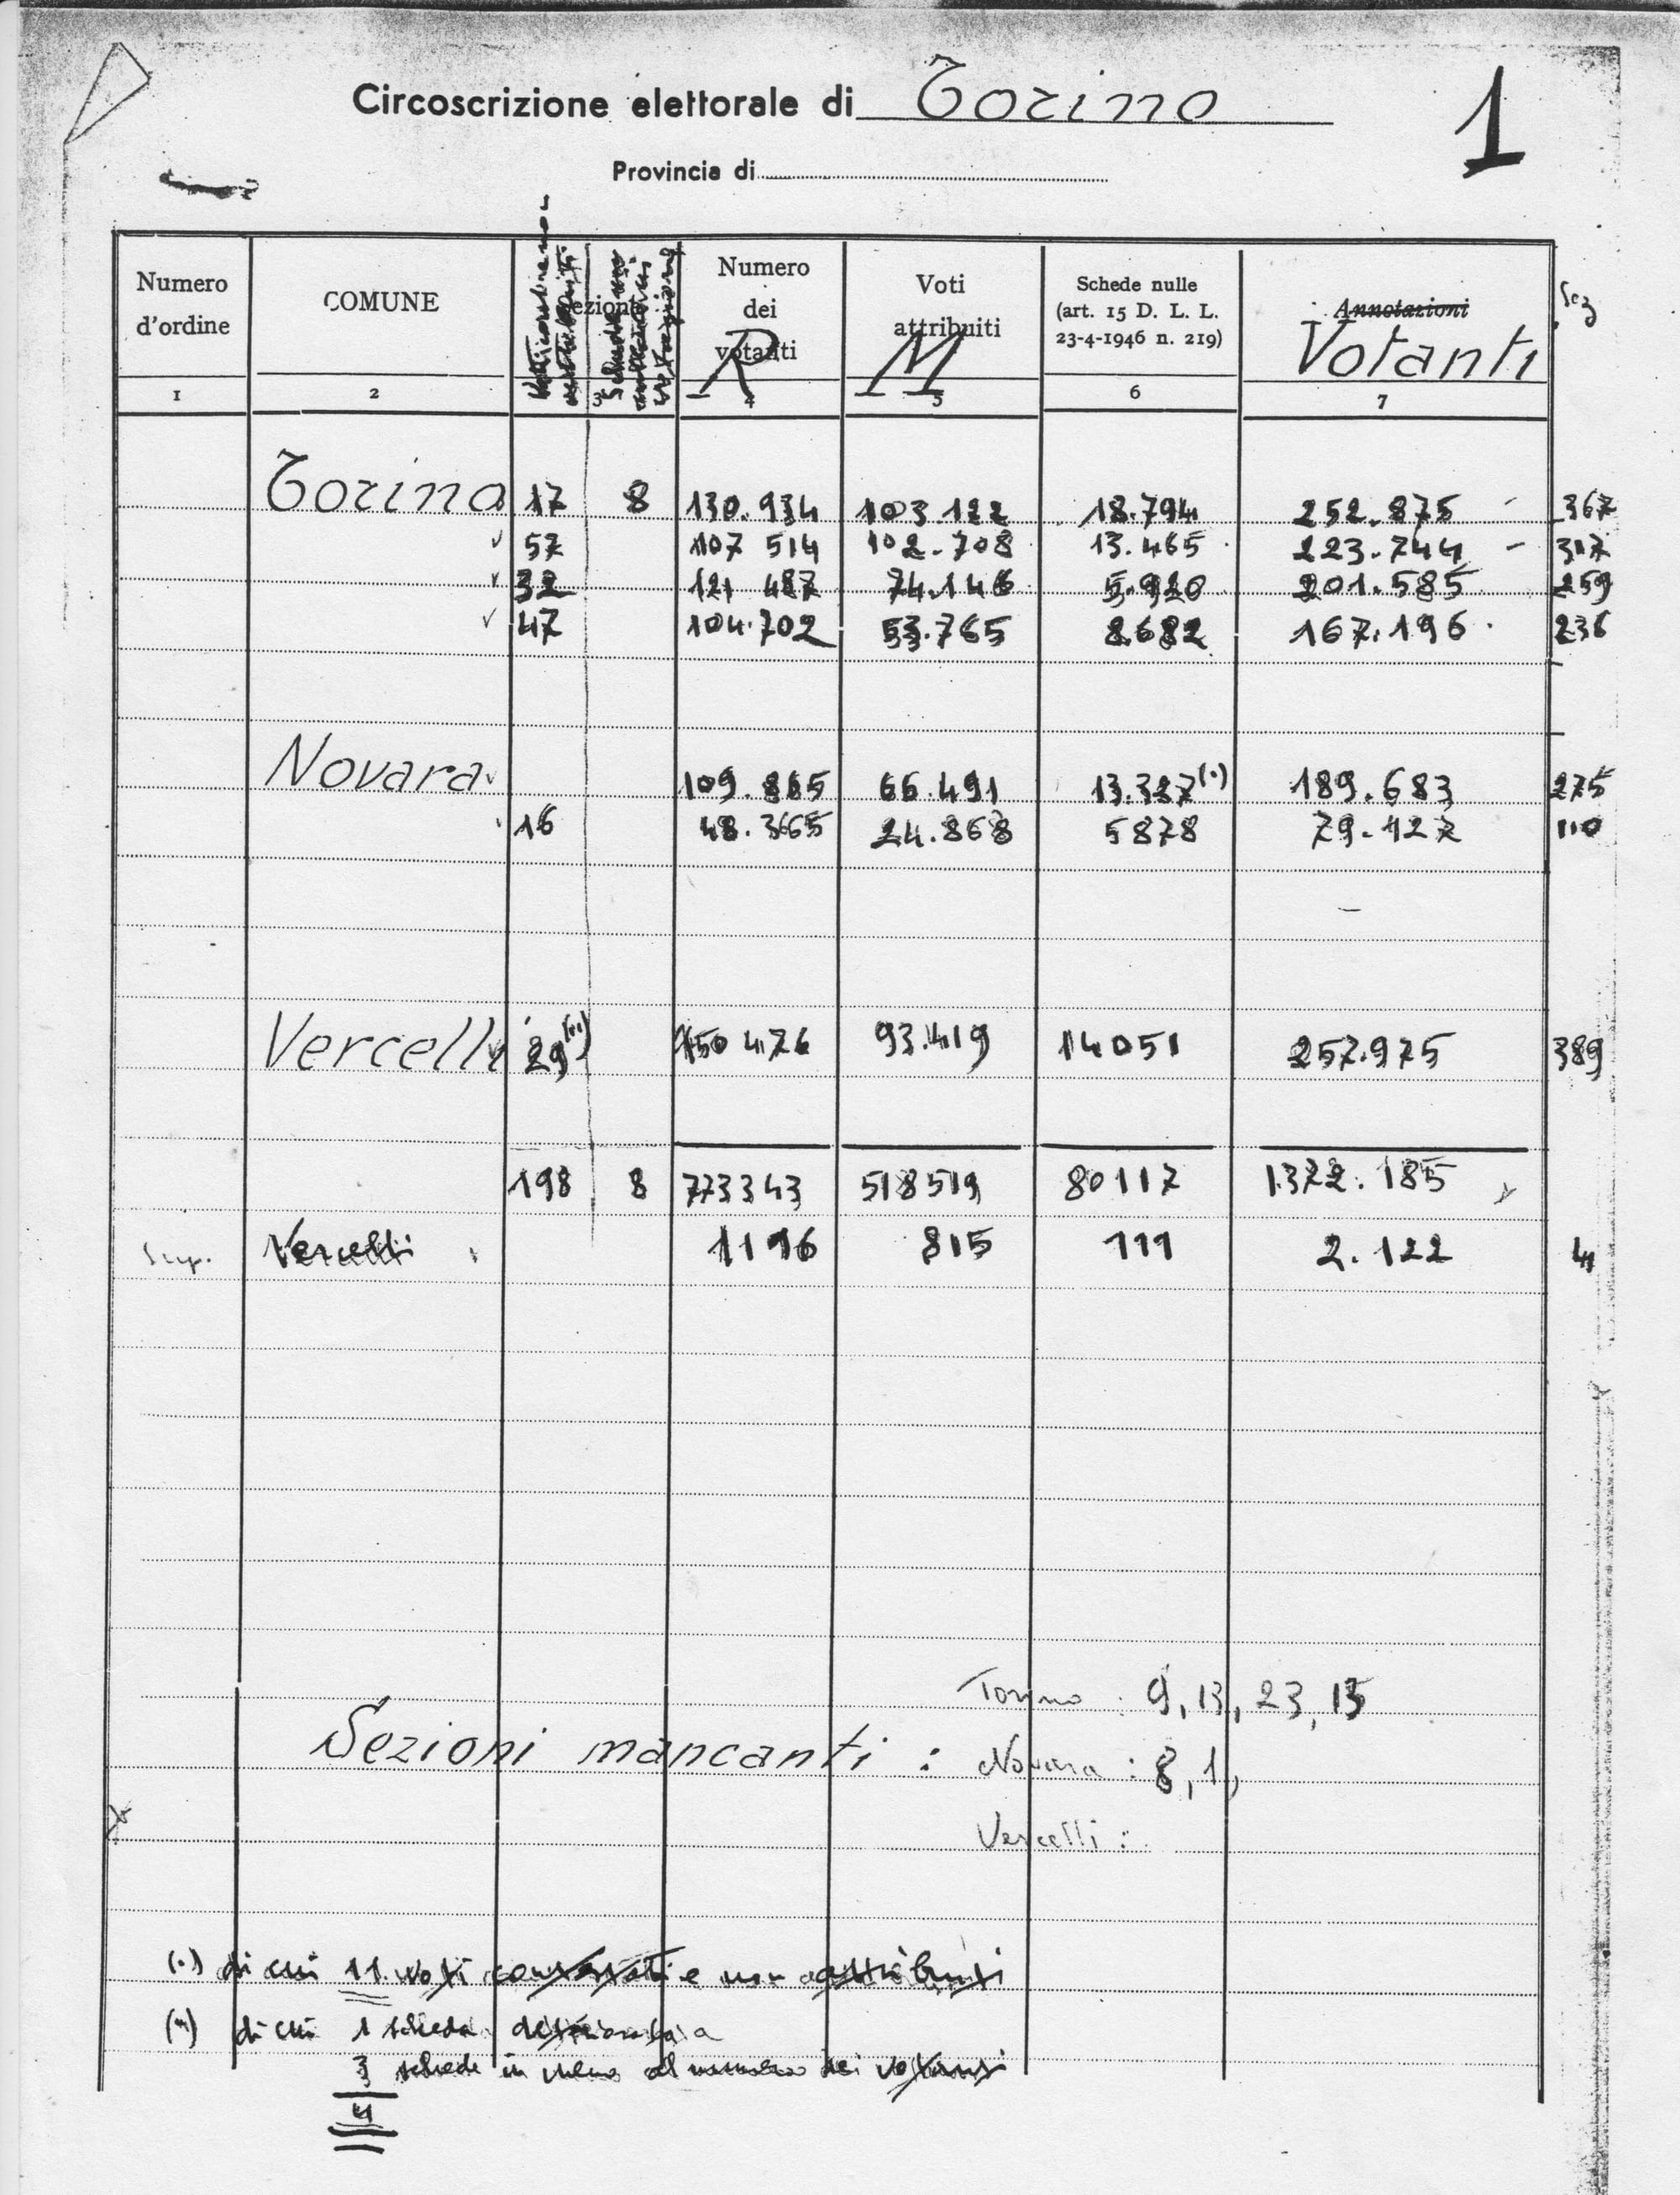 Circoscrizione elettorale di Torino
1
Provincia di
Numero d'ordine
COMUNE
Numero dei votanti
R
Voti attribuiti
M
Schede nulle
(art. 15 D. L. L.
23-4-1946 n. 219)
Annotazioni
Votanti
Sez
1 2 3 4 5 6 7
Torino 17 8 130.934 103.122 18.794 252.875 367
57 107 514 102.708 13.465 223.744 317
32 121 487 74.146 5.920 201.585 259
47 104.702 53.765 8.682 167.196 236
Novara 109.865 66.491 13.327(.) 189.683 275
16 48.3665 24.868 5878 79.127 110
Vercelli 29(..) 150 476 93.419 14051 257.975 389
198 8 773343 518519 80117 1372.185
Sup. Vercelli 1196 815 111 2.122 4
Torino : 9, 13, 23, 15
Sezioni mancanti : Novara : 8, 1,
Vercelli :
(.) di cui 11 voti contestati e non attribuiti
(..) di cui 1 scheda deteriorata
3 schede in meno al numero dei votanti
4